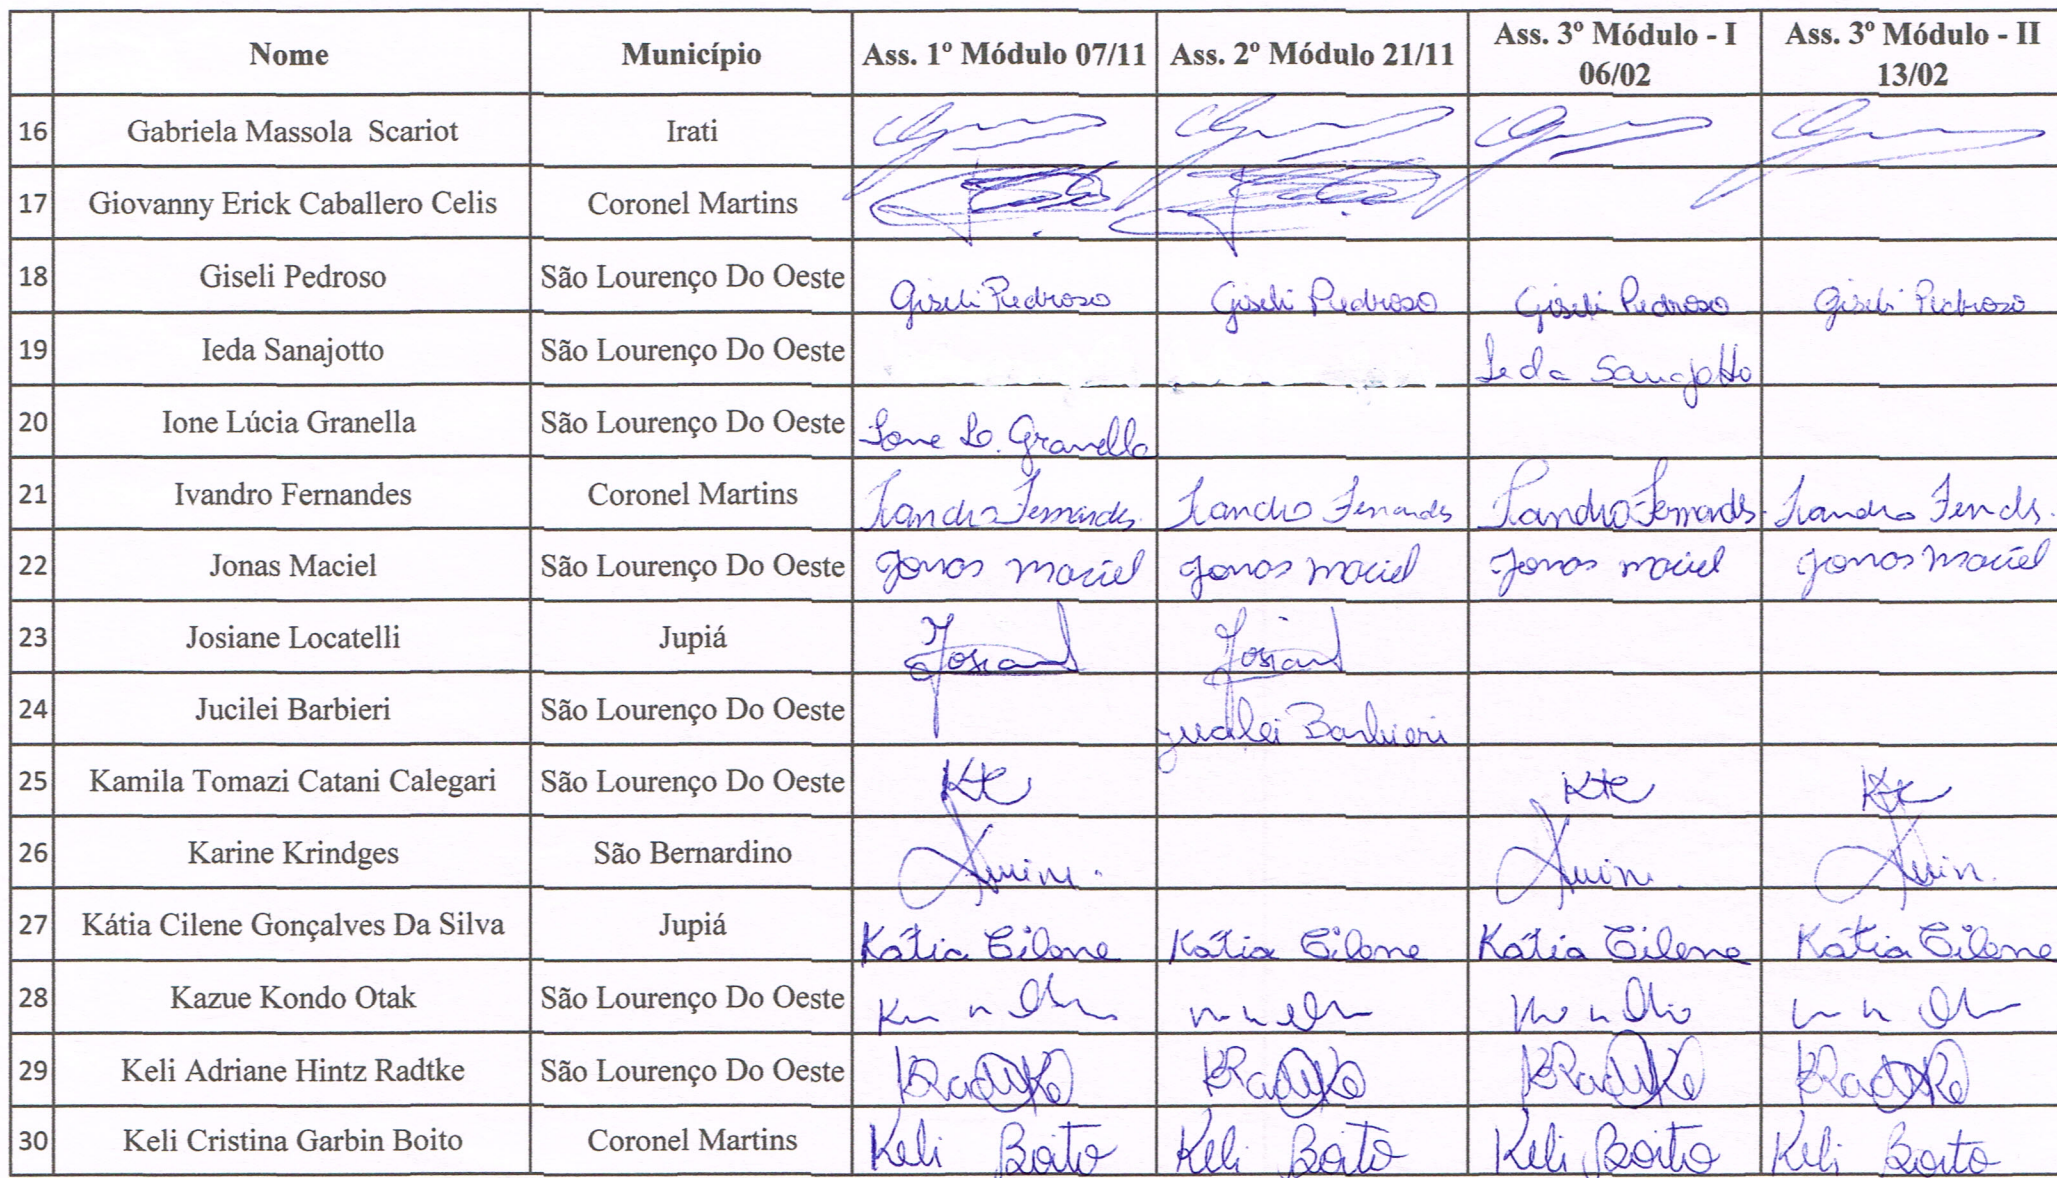 Nome Município Ass. 1º Módulo 07/11 Ass. 2º Módulo 21/11 Ass. 3º Módulo - I 06/02 Ass. 3º Módulo - II 13/02
16 Gabriela Massola Scariot Irati
17 Giovanny Erick Caballero Celis Coronel Martins
18 Giseli Pedroso São Lourenço Do Oeste Giseli Pedroso Giseli Pedroso Giseli Pedroso Giseli Pedroso
19 Ieda Sanajotto São Lourenço Do Oeste Ieda Sanajotto
20 Ione Lúcia Granella São Lourenço Do Oeste Ione L. Granella
21 Ivandro Fernandes Coronel Martins Ivandro Fernandes. Ivandro Fernandes Ivandro Fernandes. Ivandro
22 Jonas Maciel São Lourenço Do Oeste Jonas Maciel Jonas Maciel Jonas Maciel Jonas Maciel
23 Josiane Locatelli Jupiá
24 Jucilei Barbieri São Lourenço Do Oeste Jucilei Barbieri
25 Kamila Tomazi Catani Calegari São Lourenço Do Oeste
26 Karine Krindges São Bernardino
27 Kátia Cilene Gonçalves Da Silva Jupiá Kátia Cilene Kátia Cilene Kátia Cilene Kátia Cilene
28 Kazue Kondo Otak São Lourenço Do Oeste
29 Keli Adriane Hintz Radtke São Lourenço Do Oeste KRadtke KRadtke KRadtke KRadtke
30 Keli Cristina Garbin Boito Coronel Martins Keli Boito Keli Boito Keli Boito Keli Boito